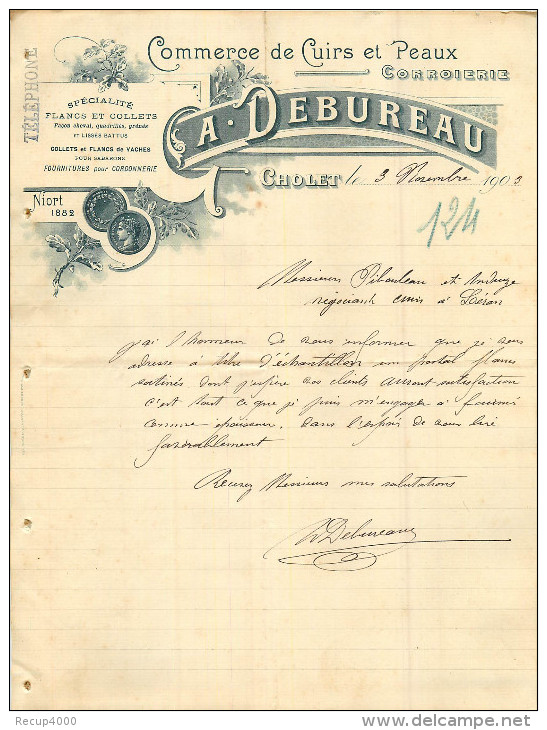 TÉLÉPHONE
Commerce de Cuirs et Peaux
CORROIERIE
A. DEBUREAU
SPÉCIALITÉ
FLANCS ET COLLETS
Façon cheval, quadrillés, grainés
ET LISSÉS BATTUS
COLLETS et FLANCS de VACHES
POUR GABARONS
FOURNITURES pour CORDONNERIE
Niort
1882
CHOLET le 3 Novembre 1903
124
Messieurs et
négociants cuirs à Léran
J'ai l'honneur de vous informer que je vous
adresse à titre d'échantillon un postal flancs
satinés dont j'espère vos clients auront satisfaction
c'est tout ce que je puis m'engager à fournir
comme épaisseur, dans l'espoir de vous lire
favorablement
Recevez Messieurs mes salutations
Debureau
Recup4000
www.delcampe.net